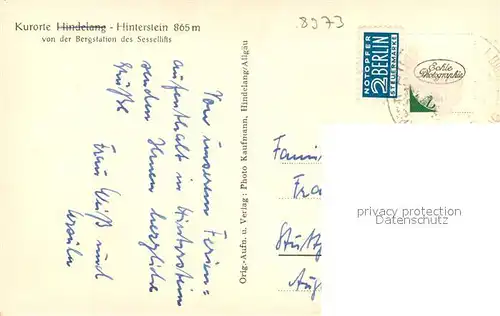 Kurorte Hindelang - Hinterstein 865 m
von der Bergstation des Sessellifts
8973
NOTOPFER
2 BERLIN
STEUERMARKE
Echte
Photographie
Von unserem Ferien=
aufenthalt in Hinterstein
senden Ihnen herzliche
Grüße
Frau Weiß und
Orig.-Aufn. u. Verlag: Photo Kaufmann, Hindelang/Allgäu
Fami
Fra
Stutt
Aug
privacy protection
Datenschutz